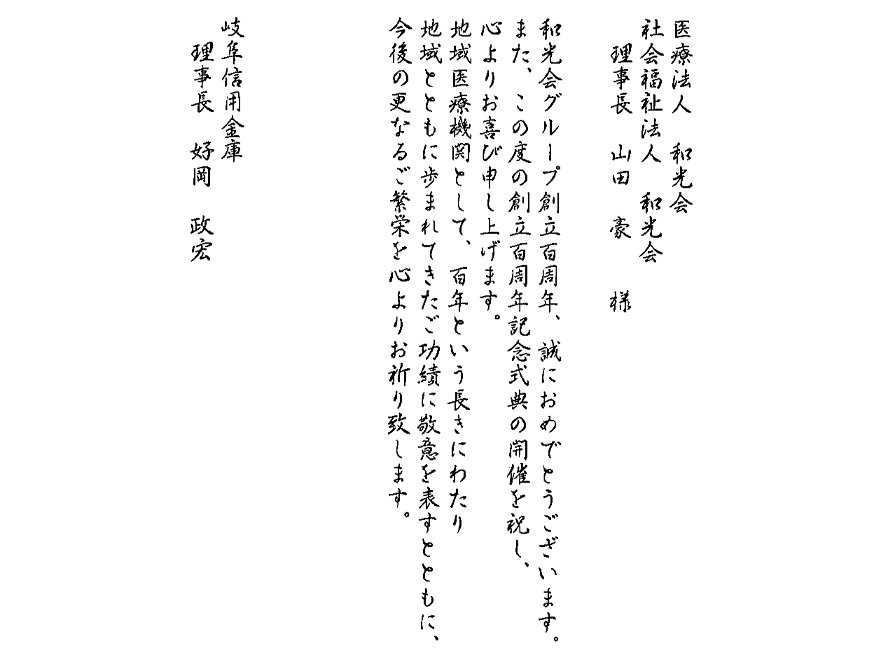 医療法人　和光会
社会福祉法人　和光会
理事長　山田　豪　様
和光会グループ創立百周年、誠におめでとうございます。
また、この度の創立百周年記念式典の開催を祝し、
心よりお喜び申し上げます。
地域医療機関として、百年という長きにわたり
地域とともに歩まれてきたご功績に敬意を表すとともに、
今後の更なるご繁栄を心よりお祈り致します。
岐阜信用金庫
理事長　好岡　政宏